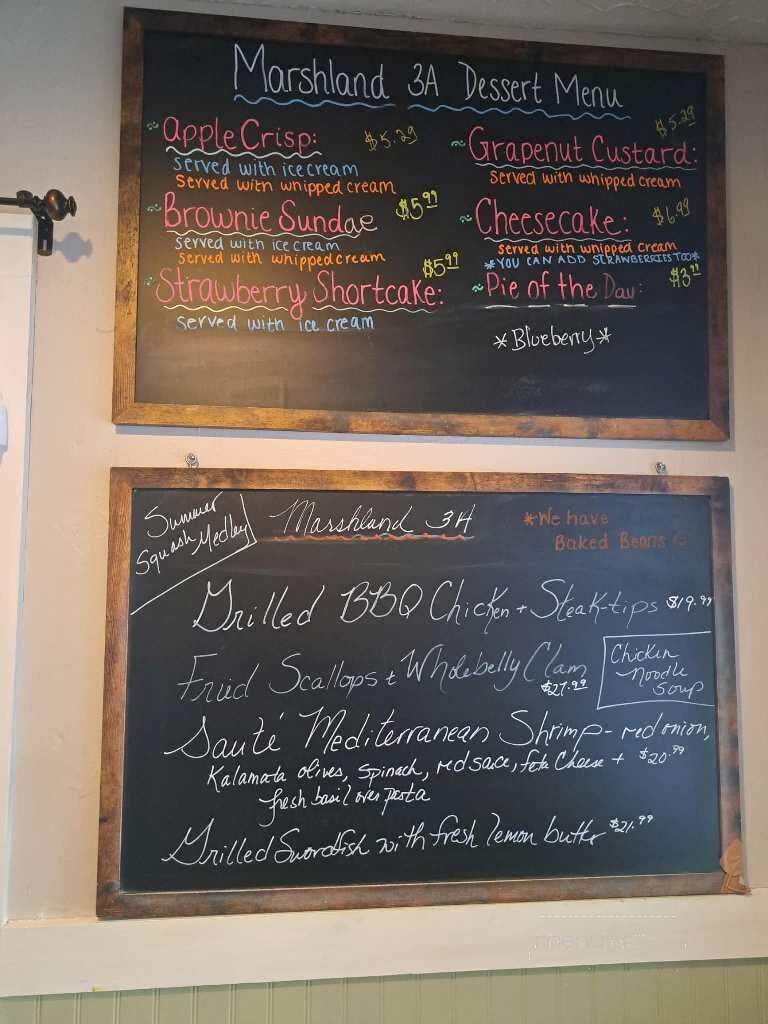 Marshland 3A Dessert Menu
~ Apple Crisp: $5.29
served with ice cream
served with whipped cream
~ Brownie Sundae $5.99
served with ice cream
served with whipped cream
~ Strawberry Shortcake: $5.99
served with ice cream
~ Grapenut Custard: $5.29
served with whipped cream
~ Cheesecake: $6.99
served with whipped cream
*YOU CAN ADD STRAWBERRIES TOO*
~ Pie of the Day: $3.99
*Blueberry*
Summer
Squash Medley
Marshland 3A
*We have
Baked Beans
Grilled BBQ Chicken + Steak-tips $19.99
Fried Scallops + Wholebelly Clam
$27.99
Chicken
Noodle
Soup
Sauté Mediterranean Shrimp - red onion,
Kalamata olives, spinach, red sauce, feta cheese + $20.99
fresh basil over pasta
Grilled Swordfish with fresh lemon butter $21.99